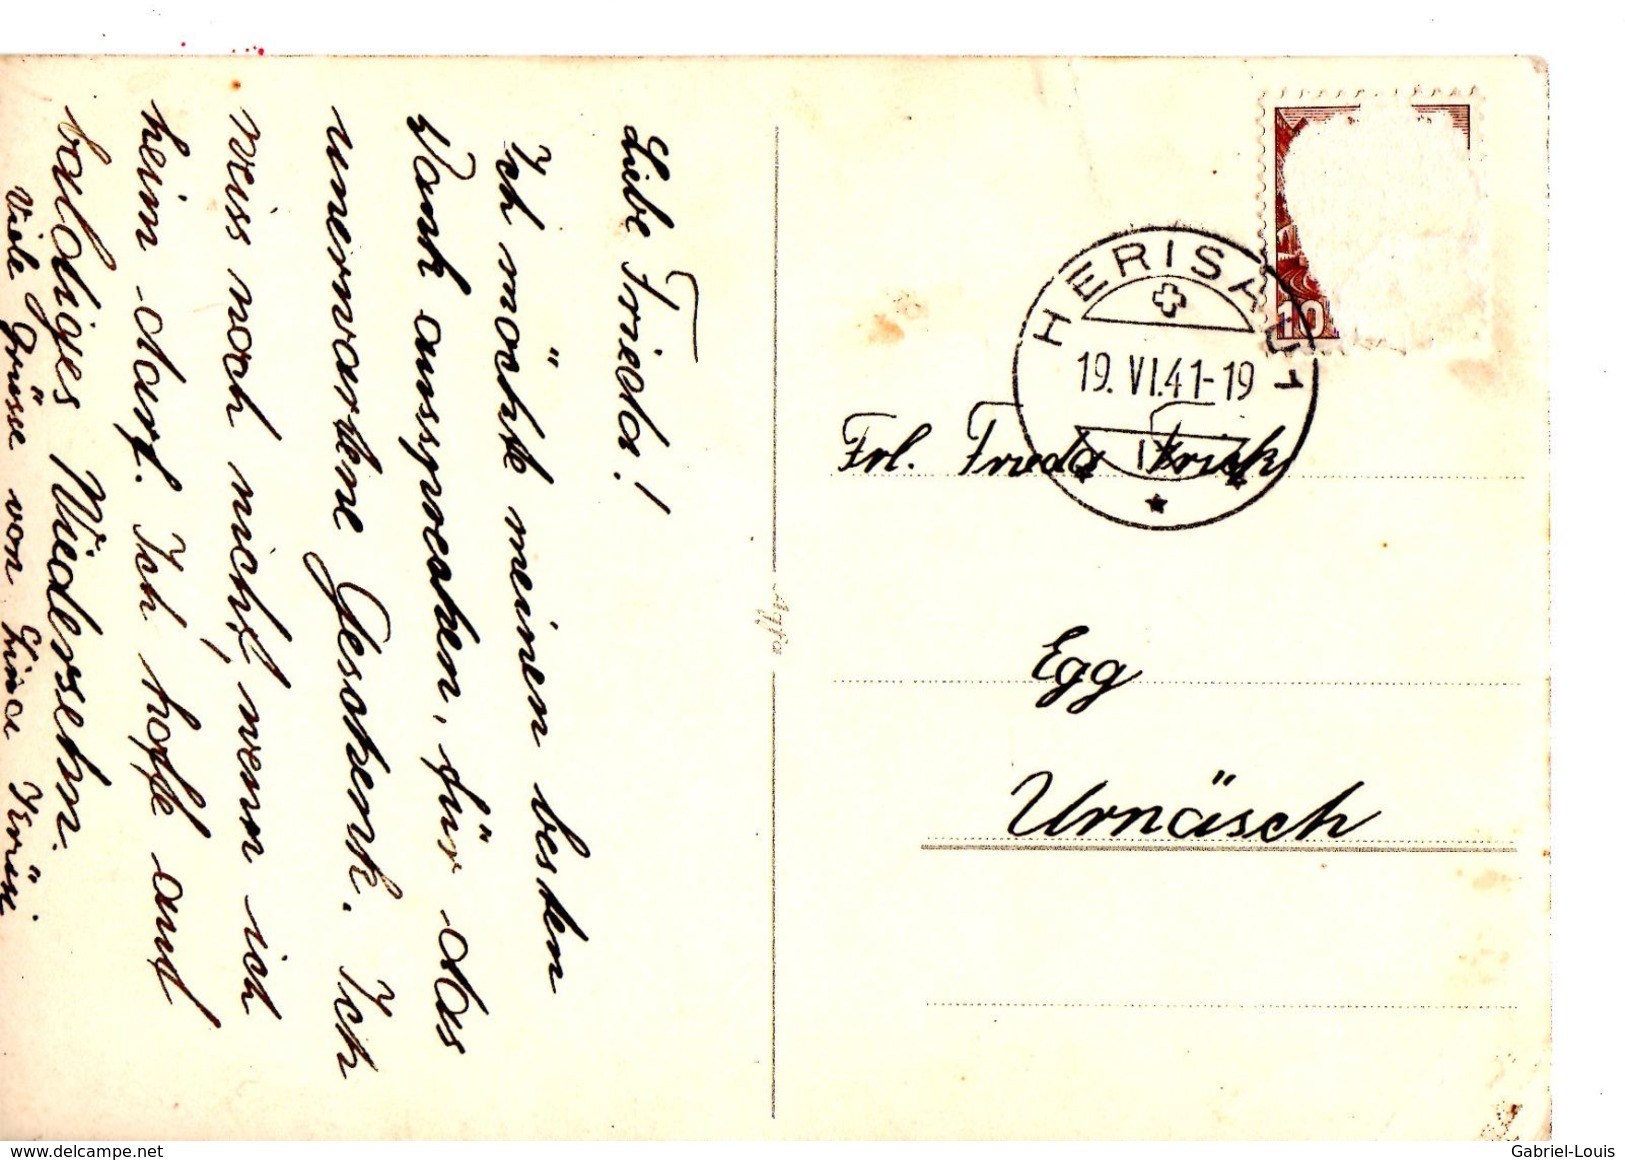 Liebe Frieda!
Ich möchte meinen besten
Dank aussprechen, für das
unerwartene Geschenk. Ich
weiss noch nicht, wenn ich
heim darf. Ich hoffe auf
baldiges Wiedersehn.
Viele Grüsse von Lina Krüsi
HERISAU 1
19. VI. 41-19
10
Frl. Frieda Frick
Egg
Urnäsch
Agfa
delcampe.net
Gabriel-Louis